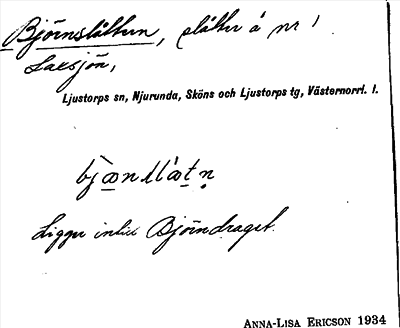 Björnslåtten, slåtter å nr 1
Laxsjön,
Ljustorps sn, Njurunda, Sköns och Ljustorps tg, Västernorrl. l.
Ligger intill Björndraget.
ANNA-LISA ERICSON 1934